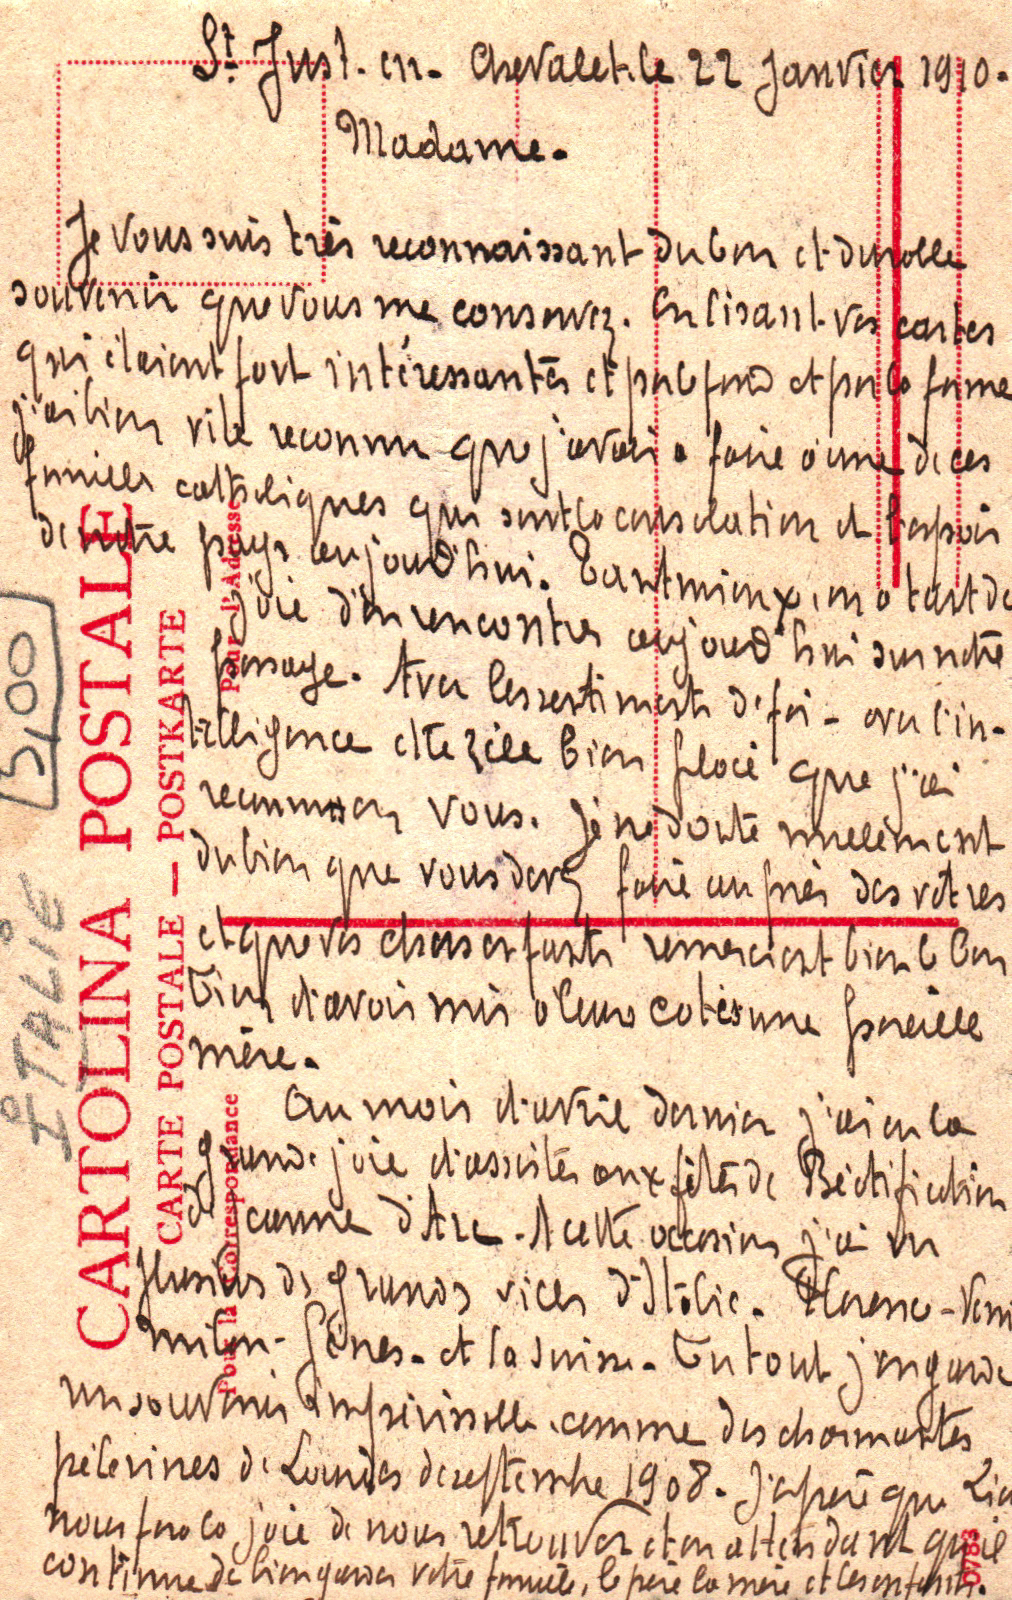 St Just. en. Chevalet. le 22 Janvier 1910.
Madame.
Je vous suis très reconnaissant du bon et du noble
souvenir que vous me conservez. En lisant vos cartes
qui étaient fort intéressantes et par le fond et par la forme
j'ai bien vite reconnu que j'avais à faire à une de ces
familles catholiques qui sont la consolation et l'espoir
de notre pays aujourd'hui. Tant mieux, on a tant de
joie d'en rencontrer aujourd'hui sur notre
passage. Avec les sentiments de foi - avec l'in-
telligence et le zèle bien placé que j'ai
reconnus en vous. Je ne doute nullement
du bien que vous devez faire auprès des vôtres
et que vos chers enfants remercient bien le bon
Dieu d'avoir mis à leurs côtés une pareille
mère.
Au mois d'avril dernier j'ai eu la
grande joie d'assister aux fêtes de Béatification
de Jeanne d'Arc. A cette occasion j'ai vu
plusieurs des grandes villes d'Italie. Florence - Veni
milan - Gênes. et la Suisse. Du tout j'en garde
un souvenir impérissable comme des charmantes
pèlerines de Lourdes de septembre 1908. J'espère que Dieu
nous fera la joie de nous retrouver et en attendant qu'il
continue de bien garder votre famille, le père la mère et les enfants.
CARTOLINA POSTALE
CARTE POSTALE — POSTKARTE
Pour la Correspondance
Pour l'Adresse
ITALIE
5,00
0783